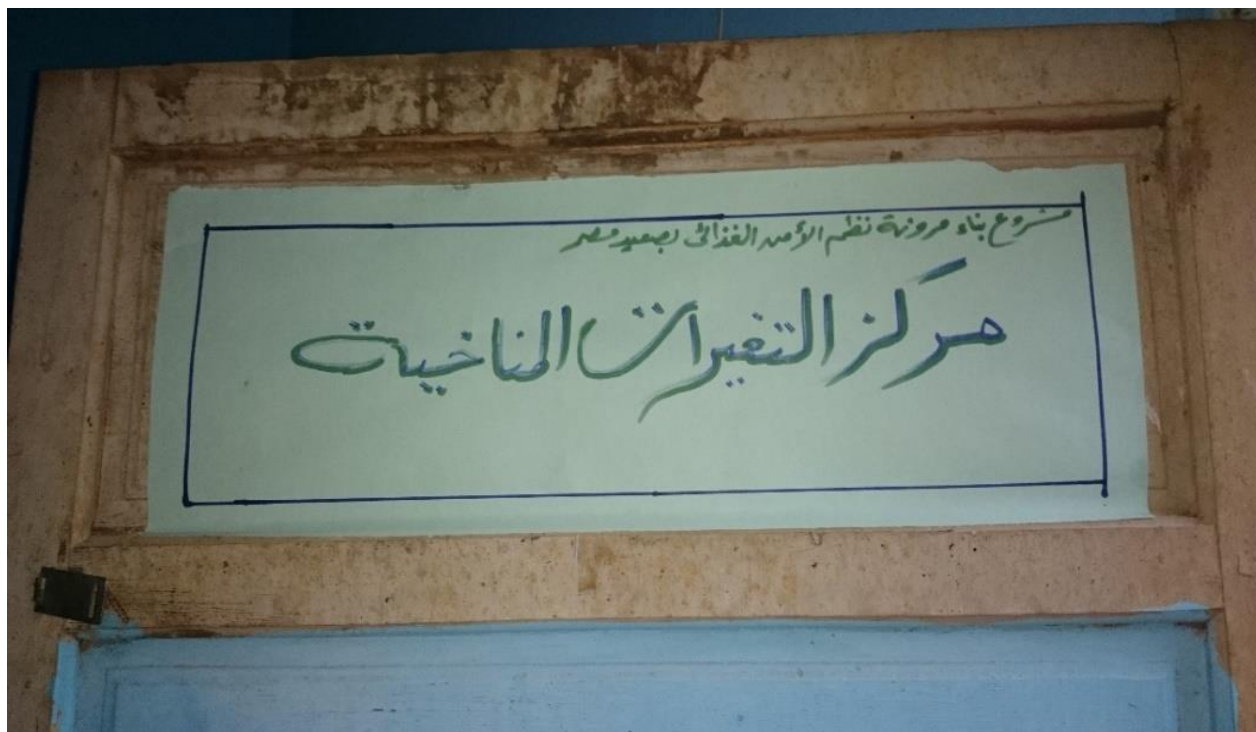 مشروع بناء مرونة نظم الأمن الغذائى بصعيد مصر
مركز التغيرات المناخية